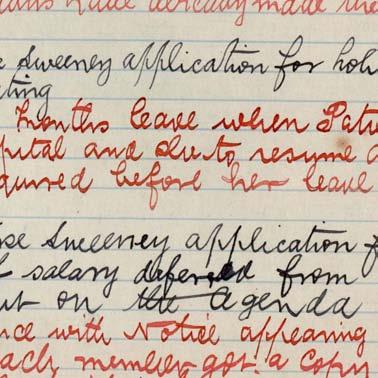 have already made the
Sweeney application for holi
ting
months leave when Patr
pital and due to resume
quired before her leave
se Sweeney application f
f salary defered from
ut on the agenda
nce with Notice appearing
each member got a copy